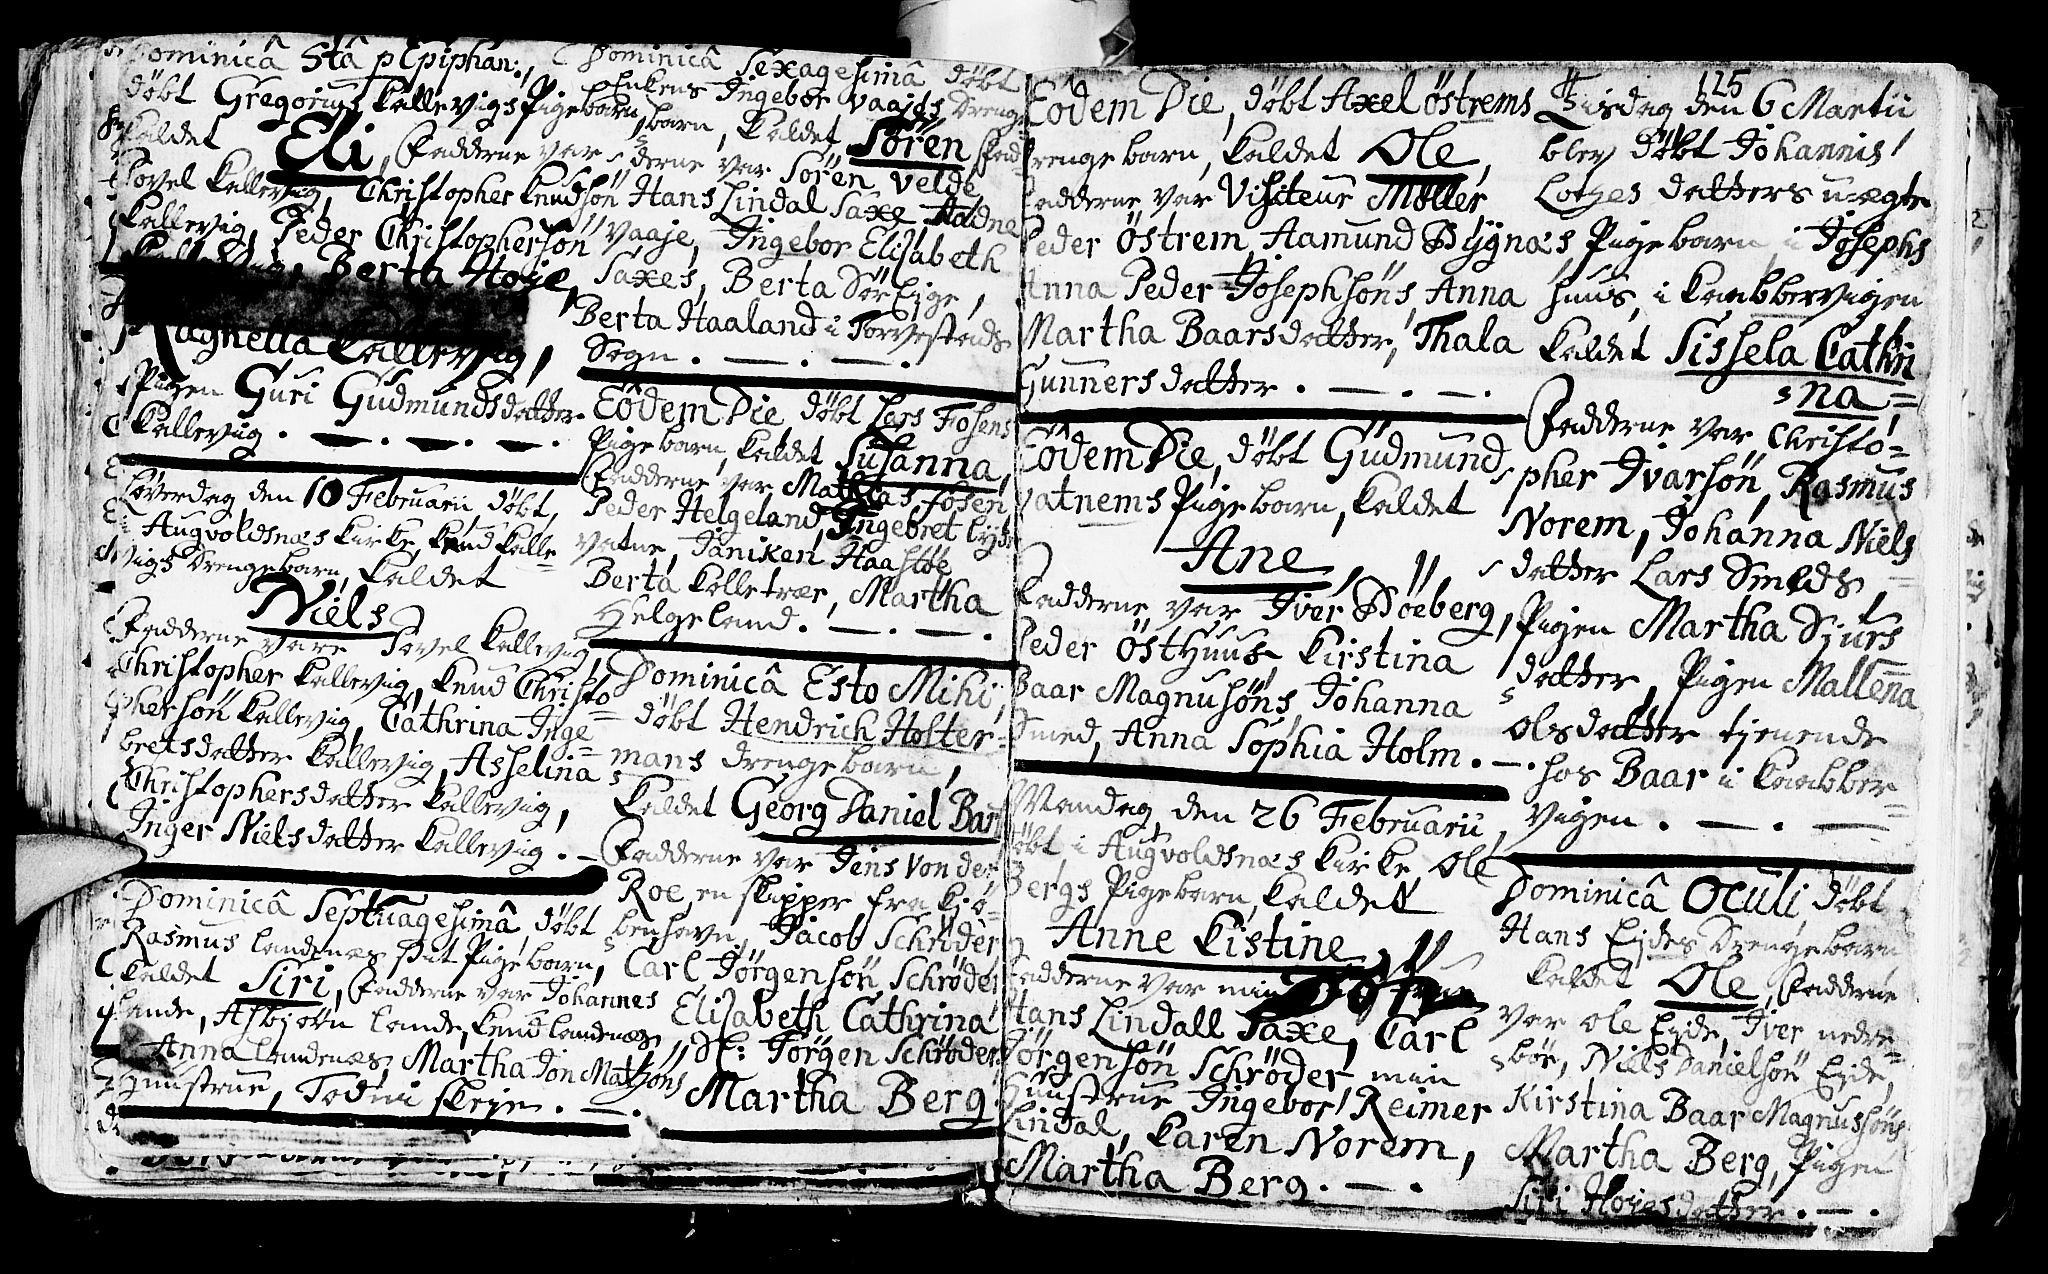 Dominicâ 5tâ p Epiphan:,
döbt Gregorius Kallevigs Pigebarn,
kaldet Eli, Fadderne var
Povel Kallevig, Christopher Knudsön
Kallevig, Peder Christophersön
Kallevig, Berta Høje,
Ragnella Kallevig,
Pigen Guri Gudmundsdatter
Kallevig. —. —. —.
Löverdag den 10 Februarii, döbt,
i Augvoldsnæs Kirke, Knud Kalle=
vigs Drengebarn, kaldet
Niels
Fadderne vare Povel Kallevig,
Christopher Kallevig, Knud Christo=
phersön Kallevig, Cathrina Inge=
bretsdatter Kallevig, Asselina
Christophersdatter Kallevig,
Inger Nielsdatter Kallevig. —
Dominicâ Septuagesimâ, döbt
Rasmus Landenæs Pigebarn,
kaldet Siri, Fadderne var Johannes
Lande, Asbjörn Lande, Knud Landenæs
Anna Landenæs, Martha Jon Matzöns
Huustrue, Todni Skeje. —.
Dominicâ Sexagesimâ döbt
Enkens Ingebor Vaajes Drenge
barn, kaldet Sören Fad=
derne var Sören Velde
Hans Lindal Saxe Haldne
Vaaje, Ingebor Elisabeth
Saxes, Berta SörEige,
Berta Haaland i Torvestads
Sogn. —. —.
Eödem Die döbt Lars Fosens
Pigebarn, kaldet Susanna,
Fadderne var Mathias Fosen,
Peder Helgeland, Ingebret Lyde
vatne, Janiken Haastöe
Berta Kolletvær, Martha
Helgeland. —. —.
Dominicâ Esto Mihi,
döbt Hendrich Holter=
mans drengebarn,
kaldet Georg Daniel Bart
Fadderne var Jens Von der
Roe, en skipper fra Kiö=
benhavn, Jacob Schröder
Carl Jörgensön Schröder
Elisabeth Cathrina
Sl: Jörgen Schröders
Martha Berg.
Eödem Die, döbt Axel östrems
Drengebarn, kaldet Ole,
Fadderne var Visiteur Møller,
Peder östrem Aamund Dygnæs,
Anna Peder Josephsöns, Anna
Martha Baarsdatter, Thala
Gunnersdatter. —. —.
Eödem Die, döbt Gudmund
Vatnems Pigebarn, kaldet
Ane
Fadderne var Iver Döeberg,
Peder östHuus, Kirstina
Baar Magnusöns, Johanna
Smed, Anna Sophia Holm. —.
Mandag den 26 Februarii,
döbt i Augvoldsnæs Kirke, Ole
Bergs Pigebarn, kaldet
Anne Kistine
Fadderne var min
Hans Lindall Saxe, Carl
Jörgensön Schröder, min
Huustrue Ingebor Reimer
Lindal, Karen Norem,
Martha Berg. —.
125
Tiisdag den 6 Martii
blev döbt Johannis
Lotzes datters uægte
Pigebarn i Josephs
huus, i Kaabbervigen
kaldet Sissela Cathri
na,
Fadderne var Christo=
pher Ivarsön, Rasmus
Norem, Johanna Niels
datter Lars Smeds,
Pigen Martha Sjurs
datter, Pigen Mallena
Olsdatter tjenende
hos Baar i Kaabber=
vigen. —. —
Dominicâ Oculi, döbt
Hans Eydes Drengebarn
kaldet Ole, Fadderne
var Ole Eyde, Iver nedre=
böe, Niels Danielsön Eyde,
Kirstina Baar Magnussöns
Martha Berg, Pigen
Siri Höjesdatter. —.